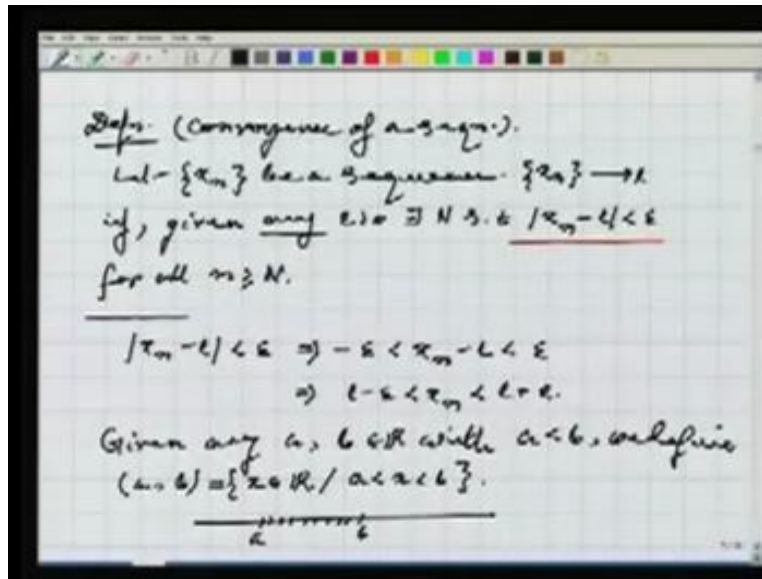 Defn. (Convergence of a seqn.).
Let {x_n} be a sequence. {x_n} → l
if, given any ε>0 ∃ N s.t |x_n - l| < ε
for all n ≥ N.
|x_n - l| < ε ⇒ -ε < x_n - l < ε
⇒ l - ε < x_n < l + ε.
Given any a, b ∈ ℝ with a < b, we define
(a, b) = {x ∈ ℝ / a < x < b}.
a b